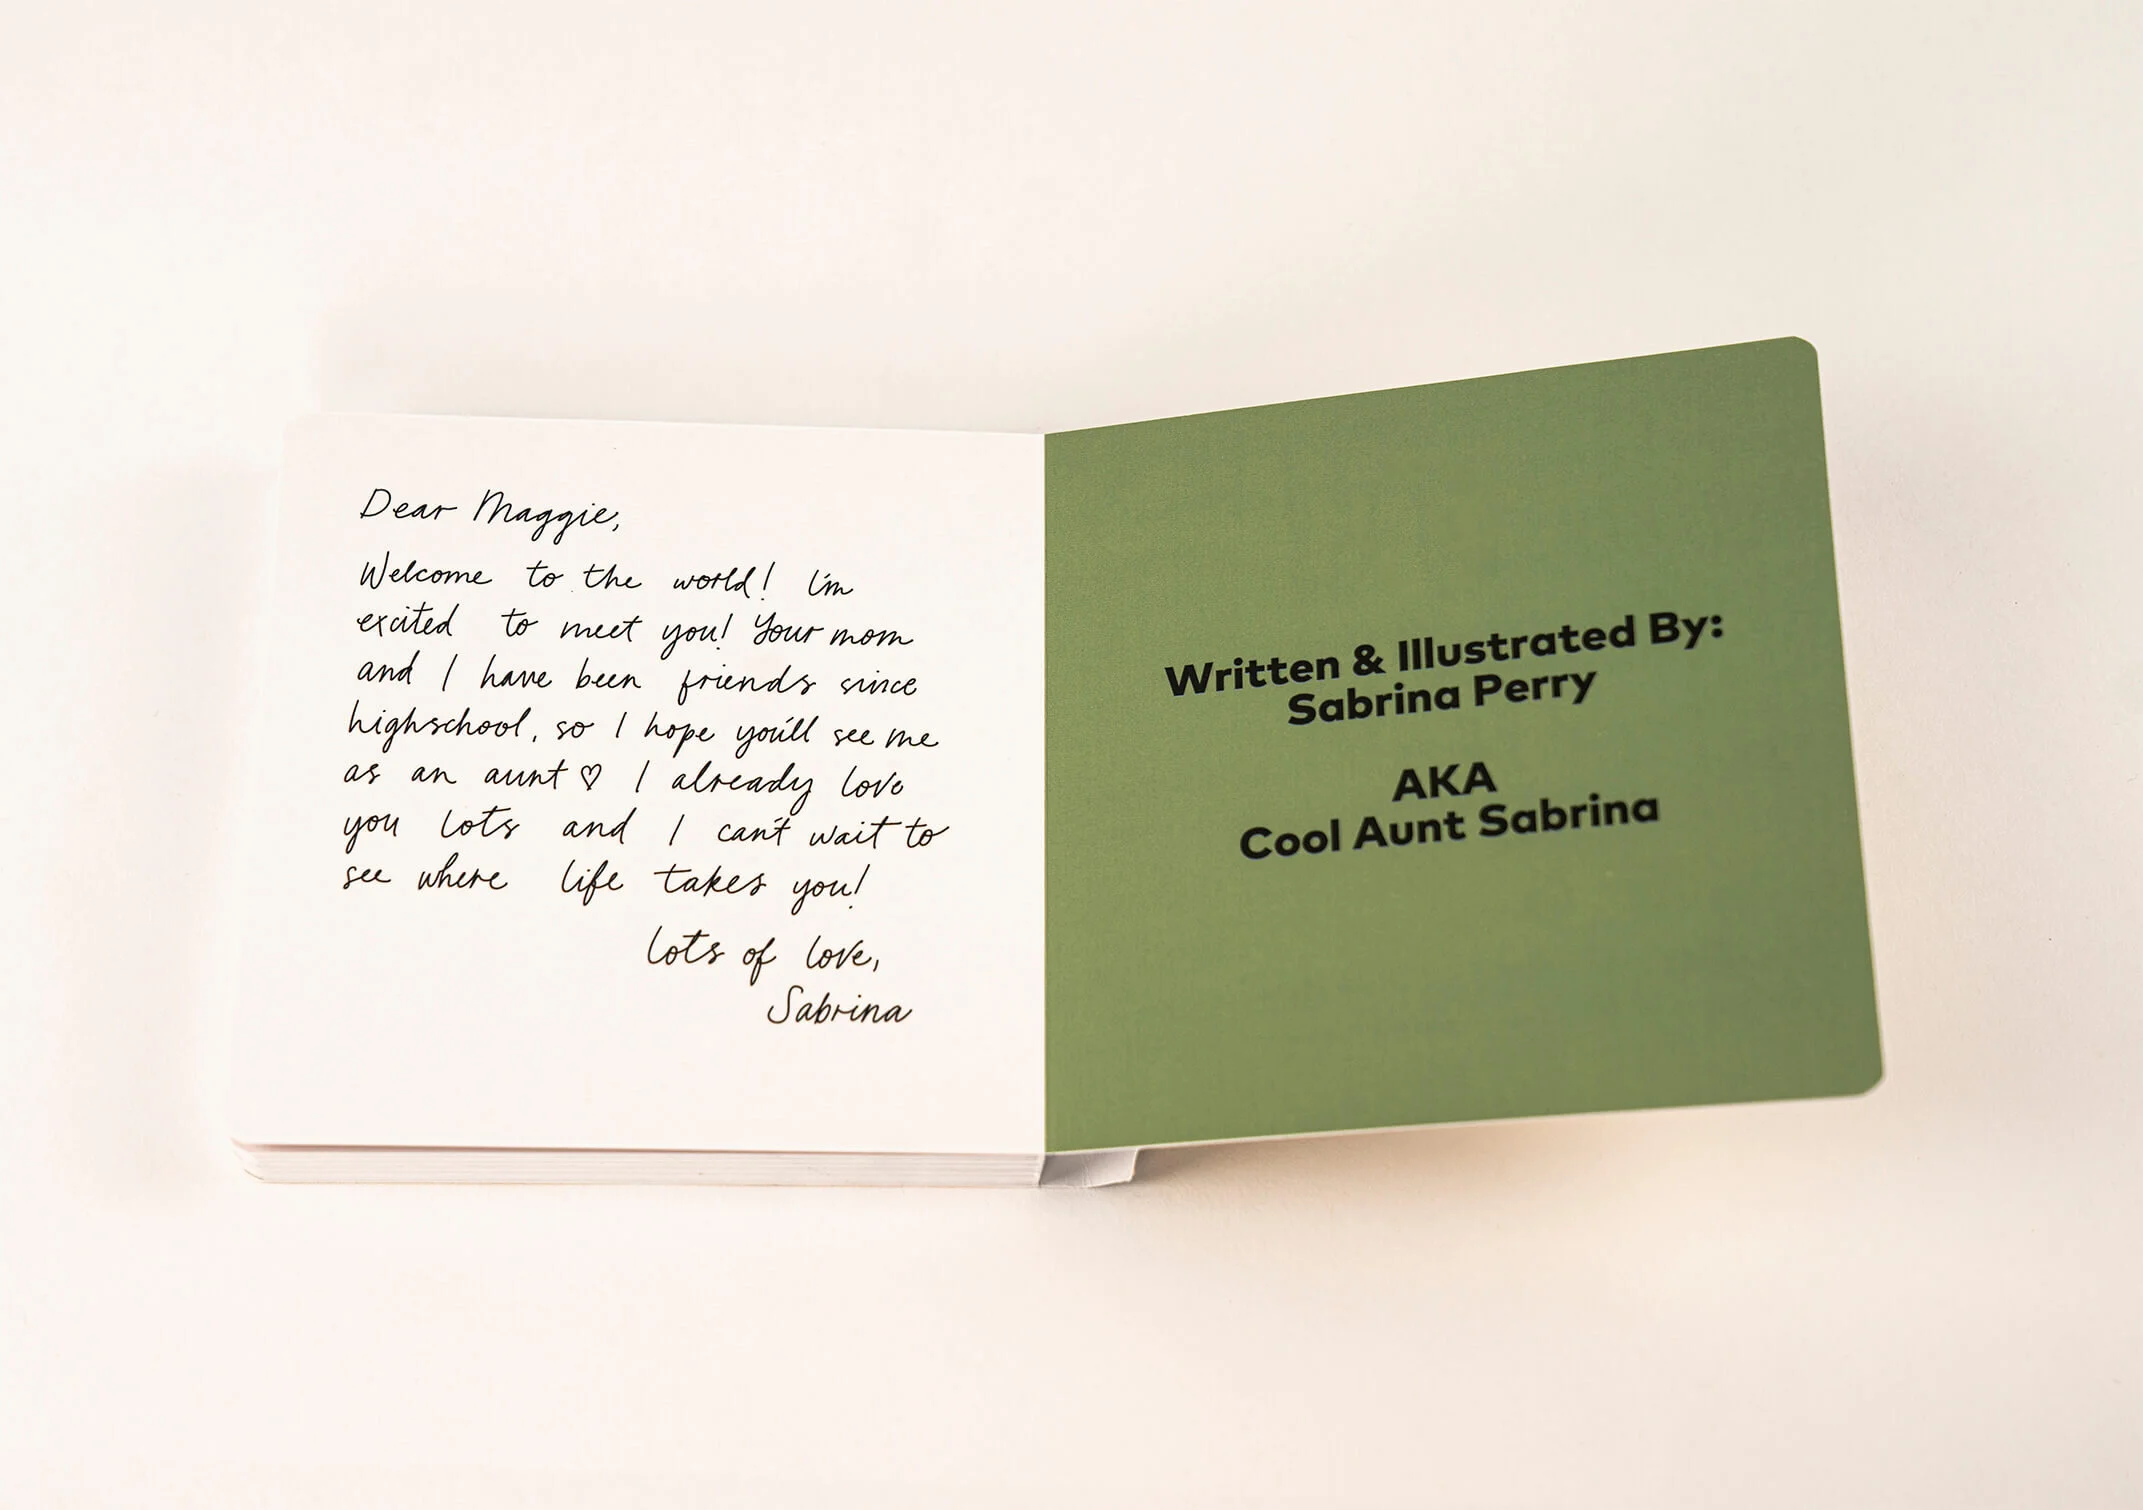 Dear Maggie,
Welcome to the world! I'm
excited to meet you! Your mom
and I have been friends since
highschool, so I hope you'll see me
as an aunt ♡ I already love
you lots and I can't wait to
see where life takes you!
Lots of love,
Sabrina
Written & Illustrated By:
Sabrina Perry
AKA
Cool Aunt Sabrina